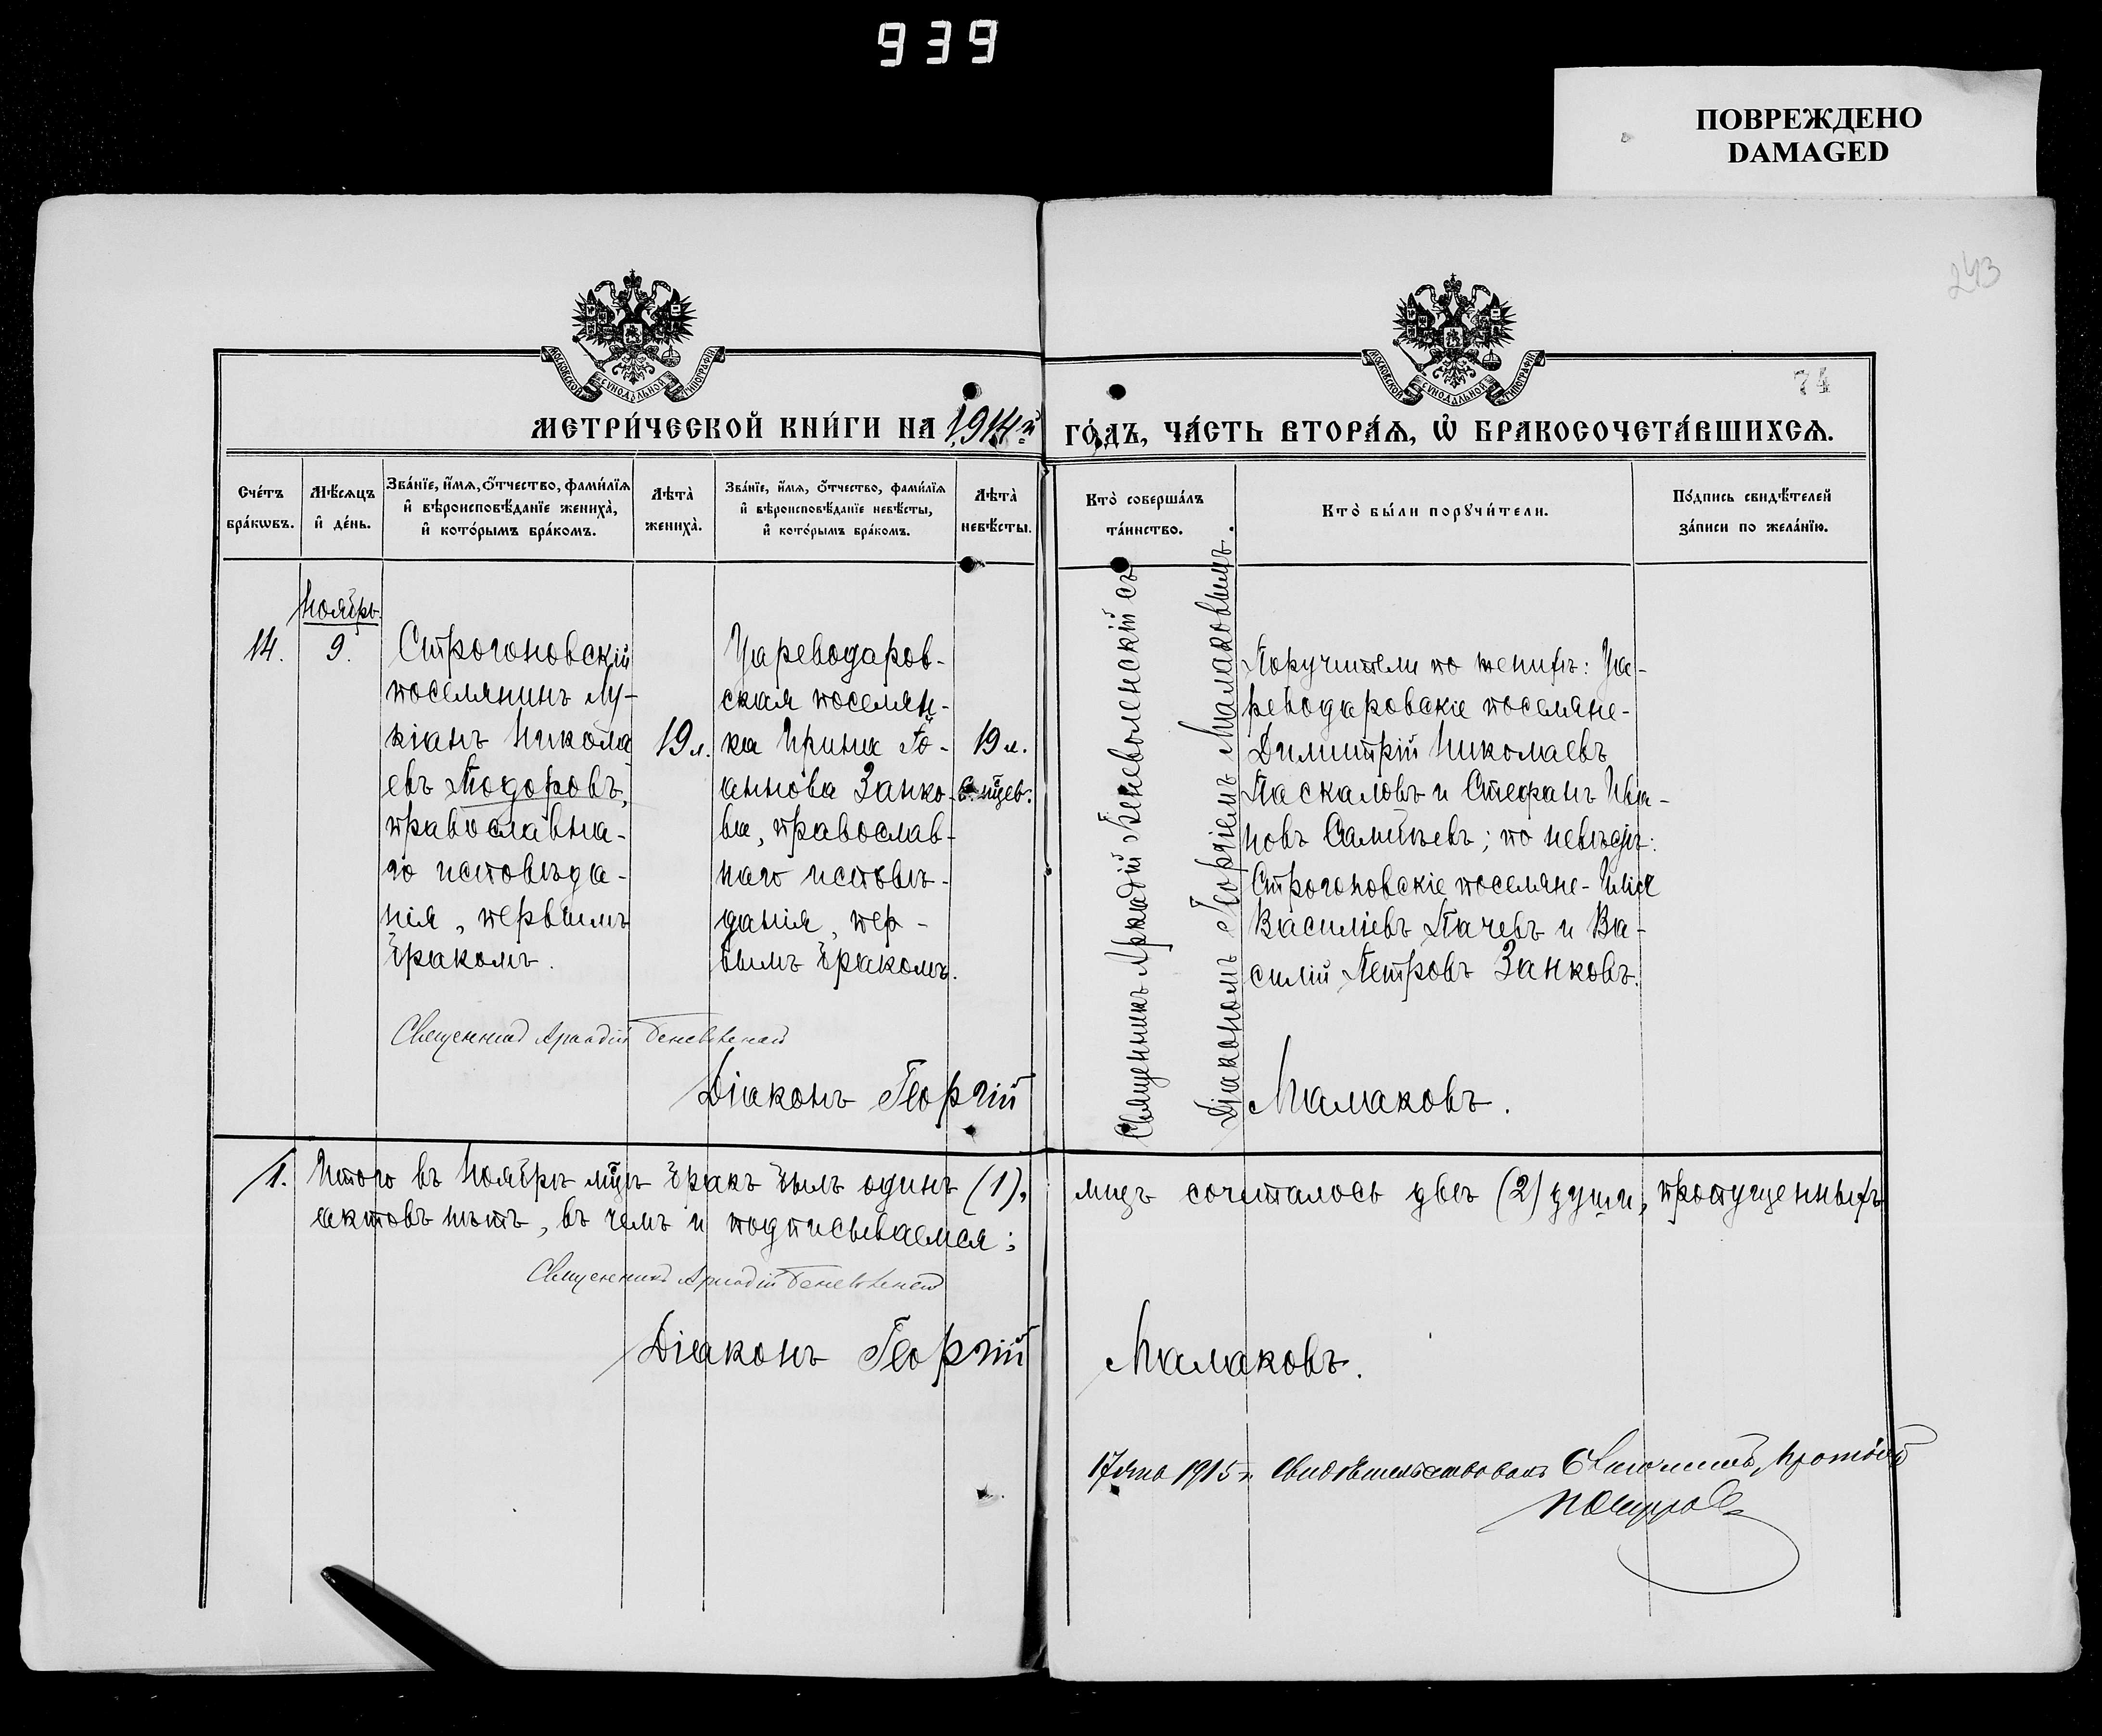 939
ПОВРЕЖДЕНО
DAMAGED
243
74
МОСКОВСКОЙ СУНОДАЛЬНОЙ ТИПОГРАФІИ
МОСКОВСКОЙ СУНОДАЛЬНОЙ ТИПОГРАФІИ
МЕТРИ́ЧЕСКОЙ КНИ́ГИ НА 1914й ГО́ДЪ, ЧА́СТЬ ВТОРА́Ѧ, Ѡ҆ БРАКОСОЧЕТА́ВШИХСѦ.
Сче́тъ
бра́кѡвъ.
Мѣ́сѧцъ
и҆ де́нь.
Зва́нїе, и҆́мѧ, ѻ҆́тчество, фами́лїѧ
и҆ вѣроисповѣ́данїе жениха̀,
и҆ кото́рымъ бра́комъ.
Лѣта̀
жениха̀.
Зва́нїе, и҆́мѧ, ѻ҆́тчество, фами́лїѧ
и҆ вѣроисповѣ́данїе невѣ́сты,
и҆ кото́рымъ бра́комъ.
Лѣта̀
невѣ́сты.
Кто̀ соверша́лъ
та́инство.
Кто̀ бы́ли порꙋчи́тели.
По́дпись свидѣ́телей
за́писи по жела́нїю.
14.
Ноябрь.
9.
Строгоновскій
поселянинъ Лу-
кіанъ Никола
евъ Тодоровъ,
православна-
го исповѣда-
нія, первымъ
бракомъ.
19 л.
Цареводаров-
ская поселян-
ка Ирина Іо-
аннова Занко-
ва, православ-
наго исповѣ-
данія, пер-
вымъ бракомъ.
19 л.
Священникъ Аркадій Беневоленскій съ
Діакономъ Георгіемъ Малаковымъ.
Поручители по женихѣ: Ца-
реводаровскіе поселяне-
Димитрій Николаевъ
Паскаловъ и Стефанъ Ива-
новъ Самуиевъ; по невѣстѣ:
Строгоновскіе поселяне- Илія
Василіевъ Пачевъ и Ва-
силій Петровъ Занковъ.
Священникъ Аркадій Беневоленскій
Діаконъ Георгій Малаковъ.
1. Итого въ Ноябрѣ мцѣ бракъ былъ одинъ (1), лицъ сочиталось двѣ (2) души, пропущенныхъ
актовъ нѣтъ, въ чемъ и подписываемся:
Священникъ Аркадій Беневоленскій
Діаконъ Георгій Малаковъ.
1915 г. Свидѣтельствовалъ